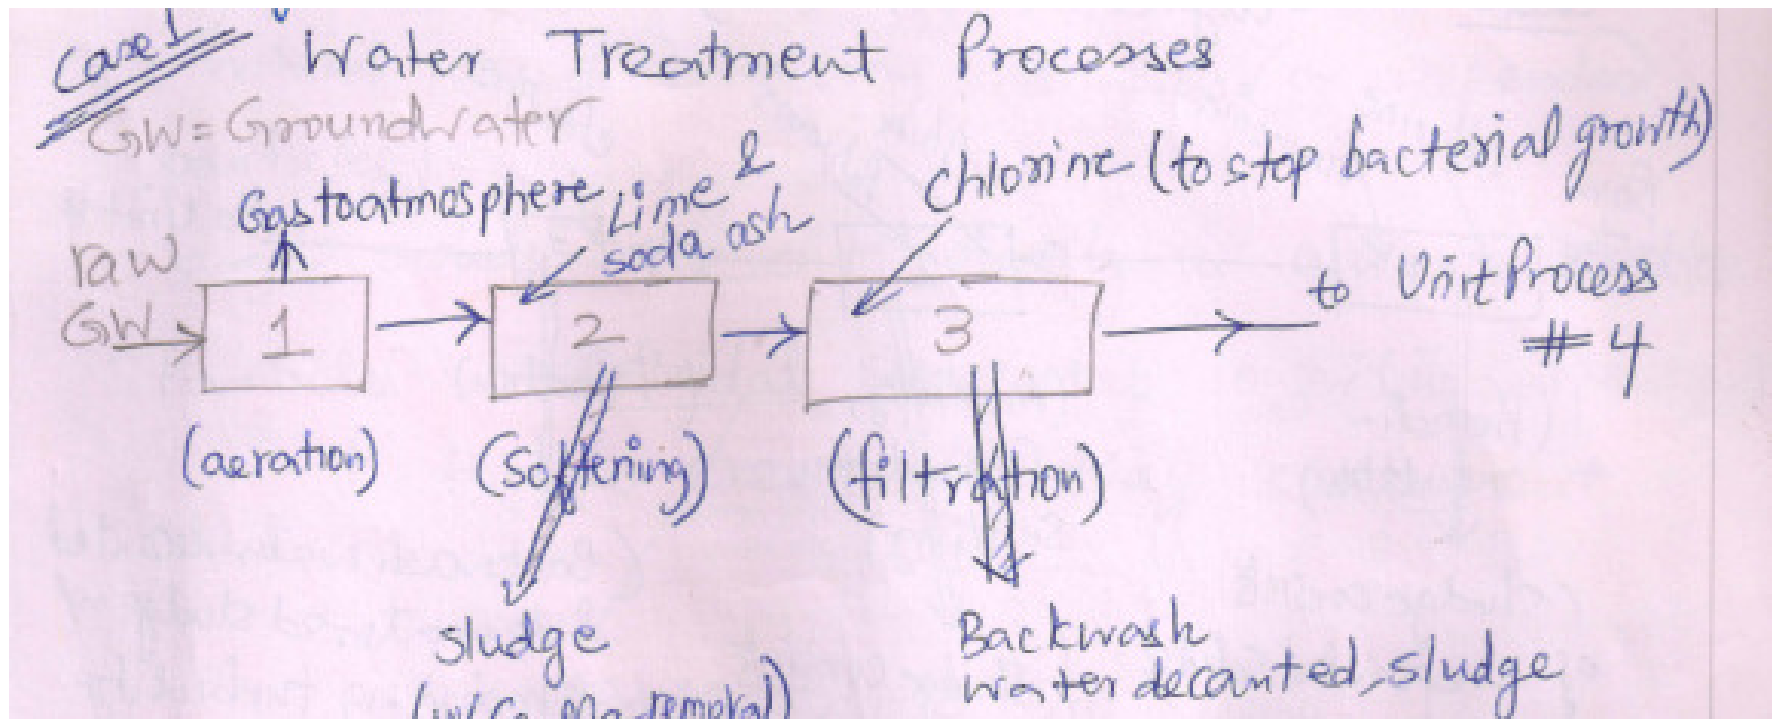 Case 1
Water Treatment Processes
GW = Groundwater
Gas to atmosphere
Lime &
soda ash
chlorine (to stop bacterial growth)
raw
GW
1
2
3
to Unit Process
# 4
(aeration)
(Softening)
(filtration)
sludge
(w/ Ca, Mg removal)
Backwash
water decanted, sludge